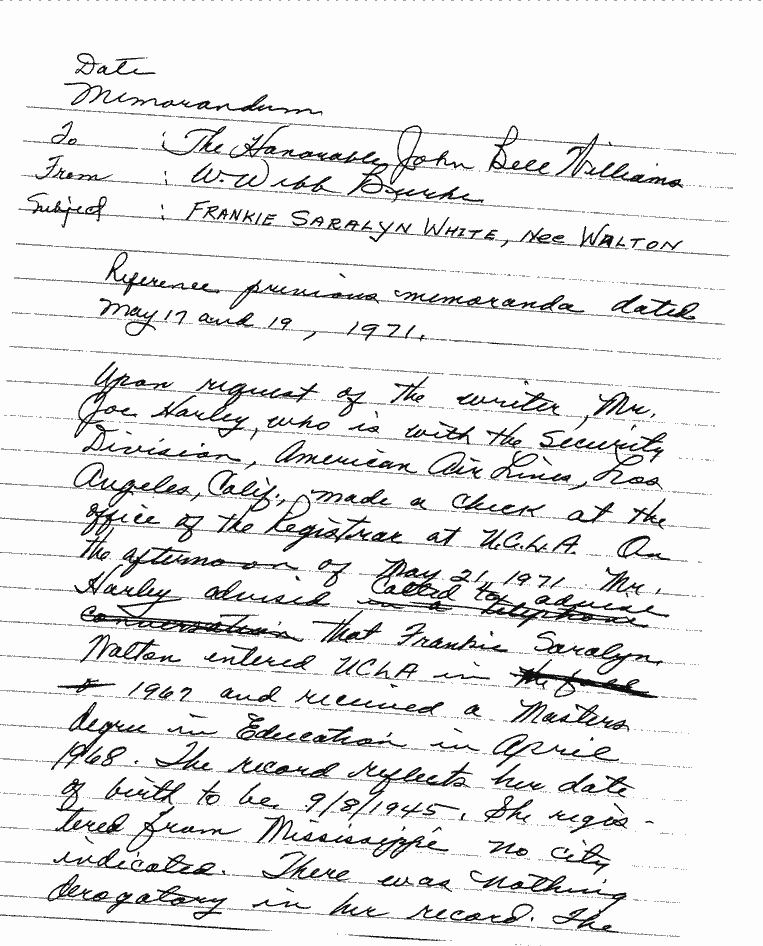 Date
Memorandum
To : The Honorable John Bell Williams
From : W. Webb Burke
Subject : FRANKIE SARALYN WHITE, Nee WALTON
Reference previous memoranda dated
May 17 and 19, 1971.
Upon request of the writer, Mr.
Joe Harley, who is with the Security
Division, American Air Lines, Los
Angeles, Calif., made a check at the
office of the Registrar at U.C.L.A. On
the afternoon of May 21, 1971 Mr.
called to advise
Harley advised in a telephone
conversation that Frankie Saralyn
Walton entered UCLA in the fall
of 1967 and received a Masters
degree in Education in April
1968. The record reflects her date
of birth to be 9/8/1945. She regis-
tered from Mississippi no city
indicated. There was nothing
derogatory in her record. The